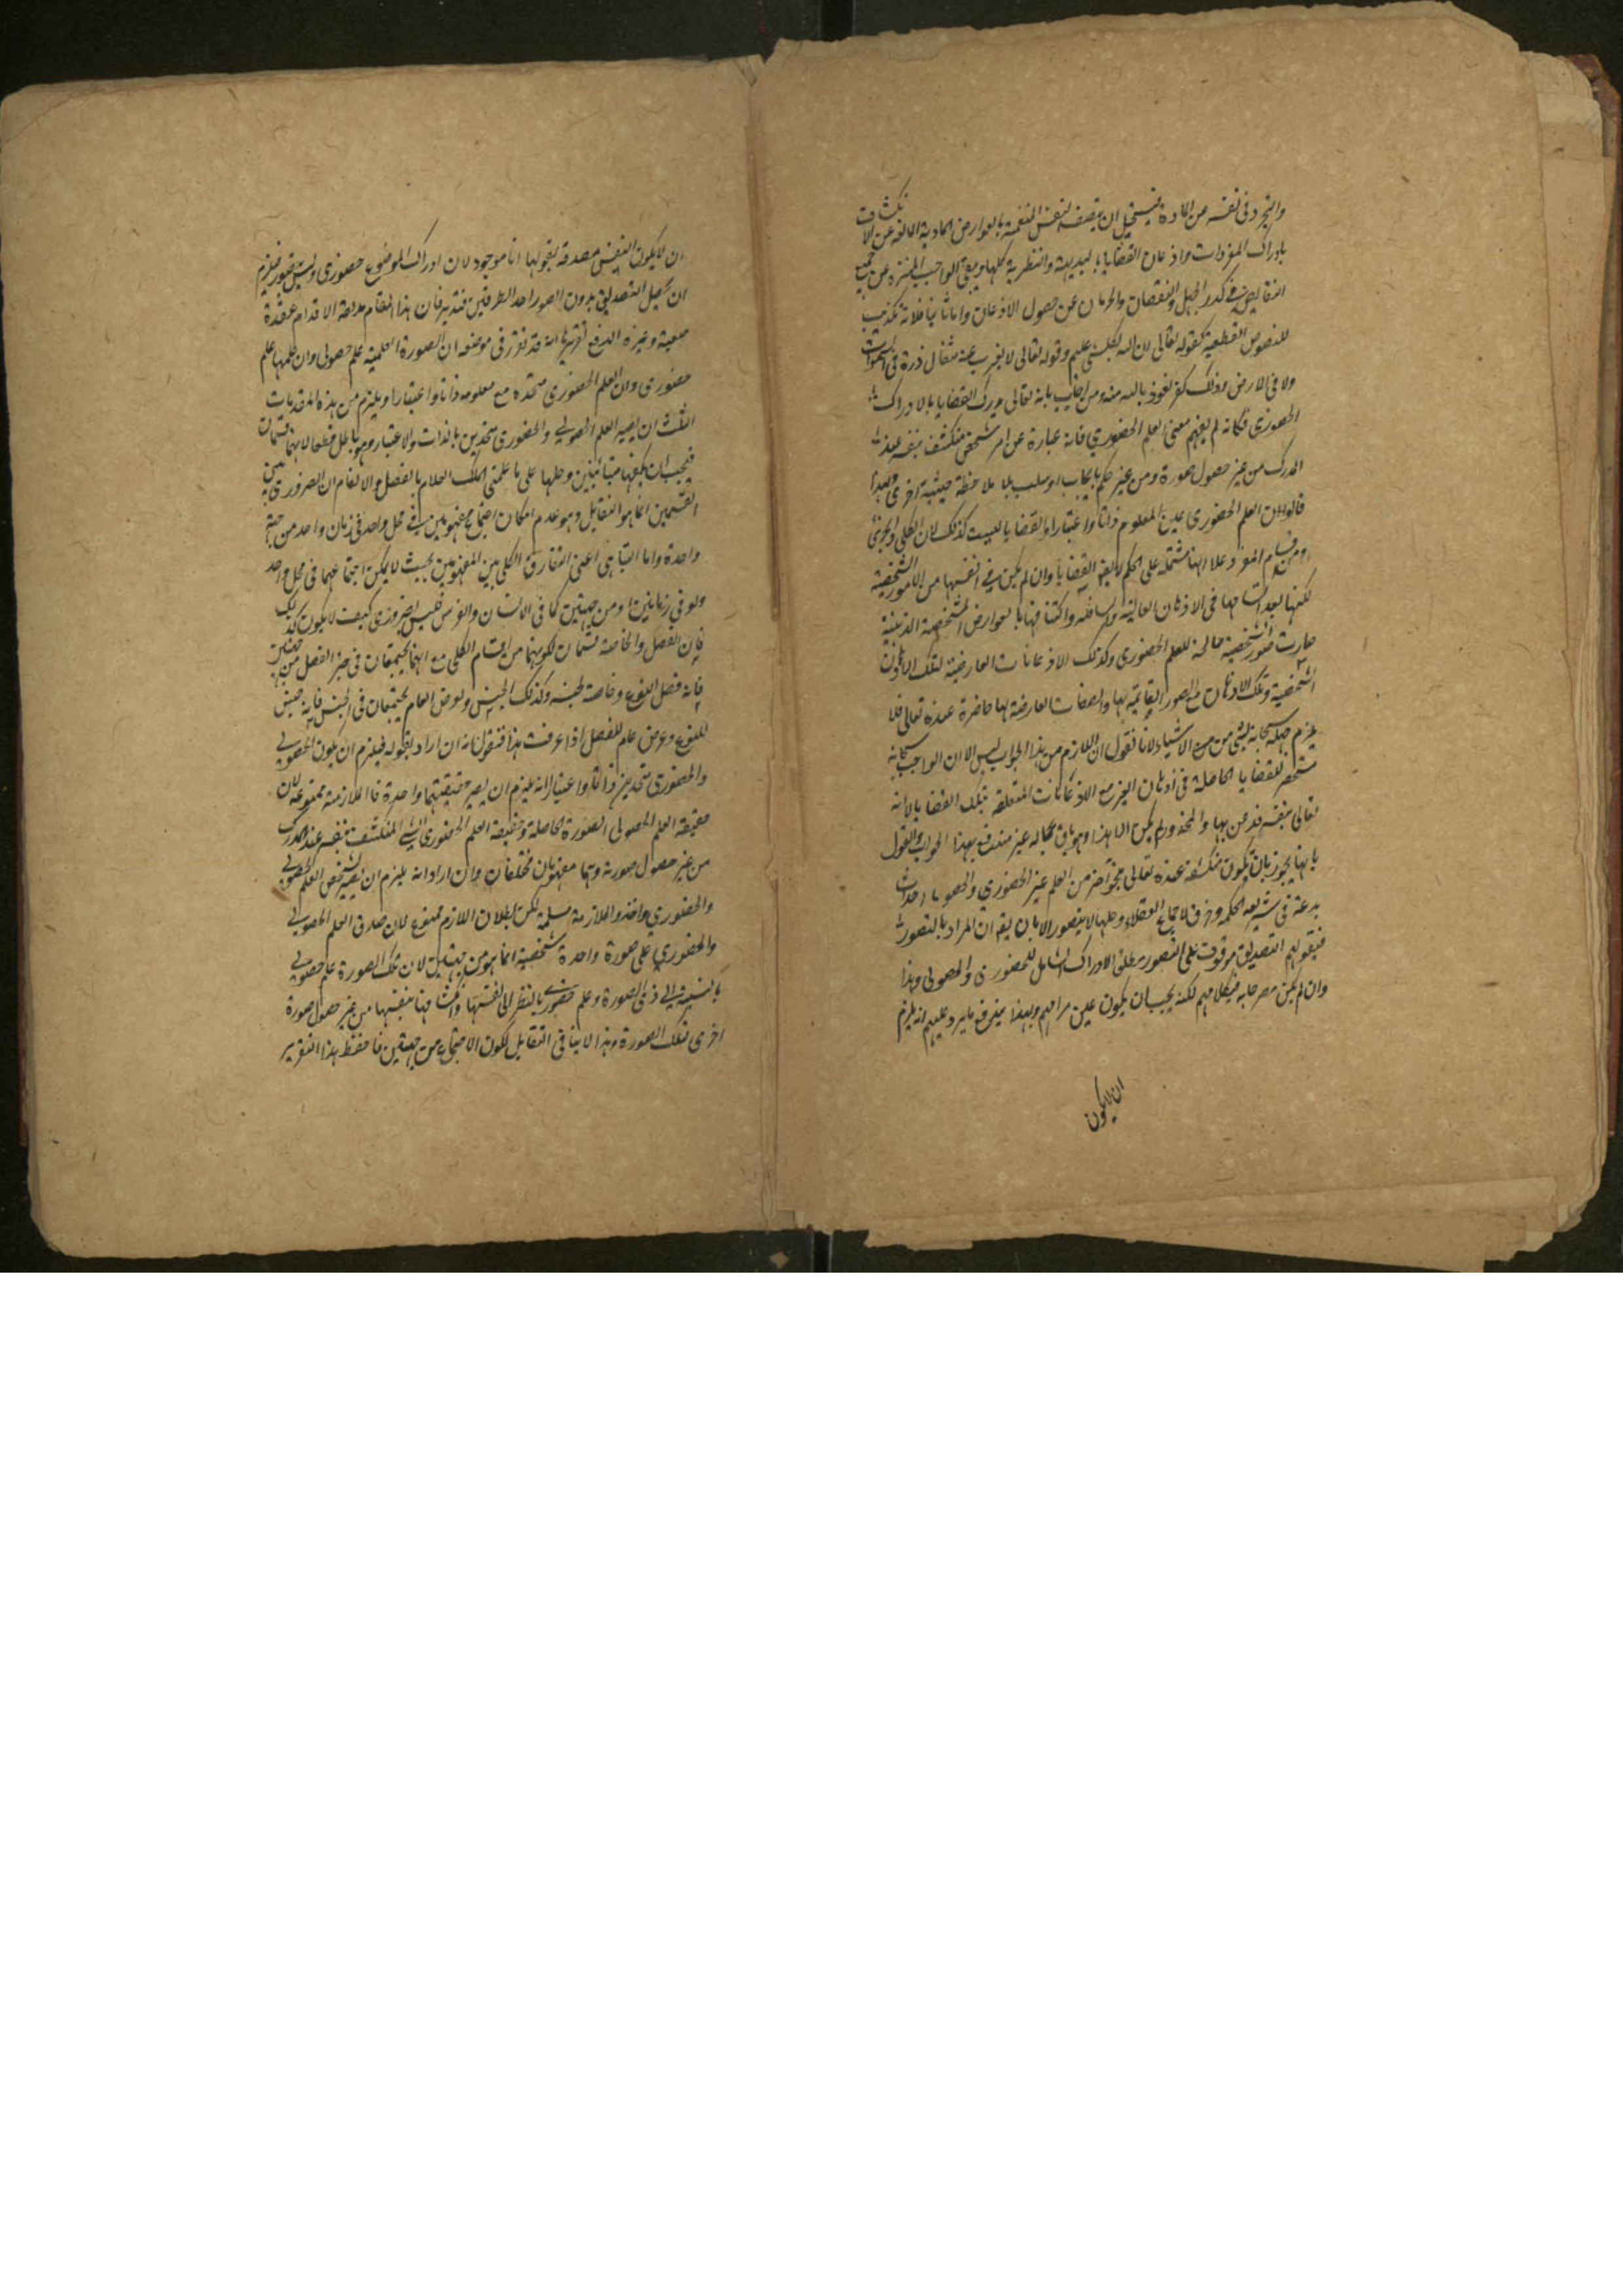 والتجرد فى نفسه عن المادة فيستحيل ان يتصف النفس المنغمسة بالعوارض المادية المانعة عن الانكشاف
بادراك المفردات واذعان القضايا البديهية والنظرية كلها ويبقى الواجب المنزه عن جميع
النقايص فى كدر الجهل والنقصان والحرمان عن حصول الاذعان واما ثانيا فلانه تكذيب
للنصوص القطعية كقوله تعالى ان الله بكل شئ عليم وقوله تعالى لا يعزب عنه مثقال ذرة فى السموات
ولا فى الارض وذلك كفر نعوذ بالله منه ومن اجاب بانه تعالى يدرك القضايا بالادراك
الحضورى فكانه لم يفهم معنى العلم الحضوري فانه عبارة عن امر شخصى منكشف بنفسه عند
المدرك من غير حصول صورة ومن غير حكم بايجاب او سلب بلا ملاحظة حيثية اخرى ولهذا
قالوا ان العلم الحضورى عين المعلوم ذاتا واعتبارا والقضايا ليست كذلك لان الكلى والجزئى
من اقسام المفرد علا انها مشتملة على الحكم لا يقه القضايا وان لم يكن فى انفسها من الامور الشخصية
لكنها بعد ارتسامها فى الاذهان العالية والسافلة واكتنافها بالعوارض المشخصة الذهنية
صارت صور شخصية صالحة للعلم الحضورى وكذلك الاذعانات العارضية لتلك الاذهان
الشخصية وتلك الاذهان مع الصور القايمة بها والصفات العارضة لها حاضرة عنده تعالى فلا
يلزم جهله سبحانه بشئ من الاشياء لانا نقول ان اللازم من هذا الجواب ليس الا ان الواجب سبحانه
مستحضر للقضايا الحاصلة فى اذهان الغير مع الاذعانات المتعلقة بتلك القضايا لا انه
تعالى بنفسه مذعن بها والمحذور لم يكن الا هذا وهو باق بحاله غير مندفع بهذا الجواب والقول
بانه يجوز بان يكون منكشفه عنده تعالى بنحو آخر من العلم غير الحضوري والحصولى احداث
بدعة فى شريعة الحكمة وخرق لاجماع العقلاء وحلها لا يتصور الا بان يقه ان المراد بالتصور
فيقولهم التصديق موقوف على التصور مطلق الادراك الشامل للحضورى والحصولى وهذا
وان لم يكن مصرحا به فى كلامهم لكنه يجب ان يكون عين مرامهم وبهذا يندفع ما يرد عليهم انه يلزم
ان لا يكون
ان لا يكون النفس مصدقة بقولها انا موجود لان ادراك الموضوع حضورى وليس بتصور فيلزم
ان يحصل التصديق بدون تصور احد الطرفين فتدبر فان هذا المقام مزلة الاقدام عقدة
صعبة وعيزة الدفع تقريرها انه قد تقرر فى موضعه ان الصورة العلمية علم حصولى وان علمها علم
حضورى وان العلم الحضورى متحدة مع معلومه ذاتا واعتبارا ويلزم من هذه المقدمات
الثلث ان يصير العلم الحصولي والحضورى متحدين بالذات والاعتبار وهو باطل قطعا لانهما قسمان
فيجب ان يكونا متباينين وحلها على ما علمنى الملك العلام بالفضل والانعام ان الضرورى بين
القسمين انما هو التقابل وهو عدم امكان اجتماع مفهومين فى محل واحد فى زمان واحد من جهة
واحدة واما التباين اعنى التفارق الكلى بين المفهومين بحيث لا يمكن اجتماعهما فى محل واحد
ولو فى زمانين او من جهتين كما فى الانسان والفرس فليس بضرورى كيف لا يكون كذلك
فان الفصل والخاصة قسمان لكونهما من اقسام الكلى مع انهما يجتمعان فى جزء الفصل من جهتين
فانه فصل النوع وخاصة لجنسه وكذلك الجنس والعرض العام يجتمعان فى الجنس فانه جنس
للنوع وعرض عام للفصل اذا عرفت هذا فنقول انه ان اراد بقوله فيلزم ان يكون الحصولي
والحضورى متحدين ذاتا واعتبارا انه يلزم ان يصير حقيقتهما واحدة فالملازمة ممنوعة لان
حقيقة العلم الحصولى الصورة الحاصلة وحقيقة العلم الحضورى الشئ المنكشف بنفسه عند المدرك
من غير حصول صورة وهما مفهومان مختلفان وان اراد انه يلزم ان يصير شخص العلم الحصولي
والحضوري واحدا فالملازمة مسلمة لكن بطلان اللازم ممنوع لان صدق العلم الحصولي
والحضوري على صورة واحدة شخصية انما هو من جهتين لان تلك الصورة علم حصولي
بالنسبة الى ذى الصورة وعلم حضورى بالنظر الى نفسها وانكشافها بنفسها من غير حصول صورة
اخرى لتلك الصورة وهذا لا ينافى التقابل لكون الاجتماع من جهتين فاحفظ هذا التقرير